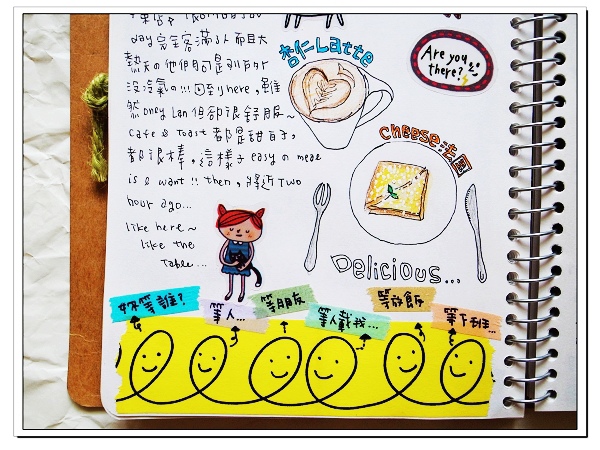 day完全客滿了人而且大
熱天の他們可是別戶外
沒冷氣の!!!回到here,雖
然only Lan但卻很舒服~
cafe & Toast 都是甜百子,
都很棒,這樣子easy の meal
is I want!! then,將近Two
hour ago...
like here~
like the
Table...
杏仁Latte
Are you
there?
cheese法國
Delicious...
妳等誰?
等人...
等朋友
等人載我...
等放飯
等下班...